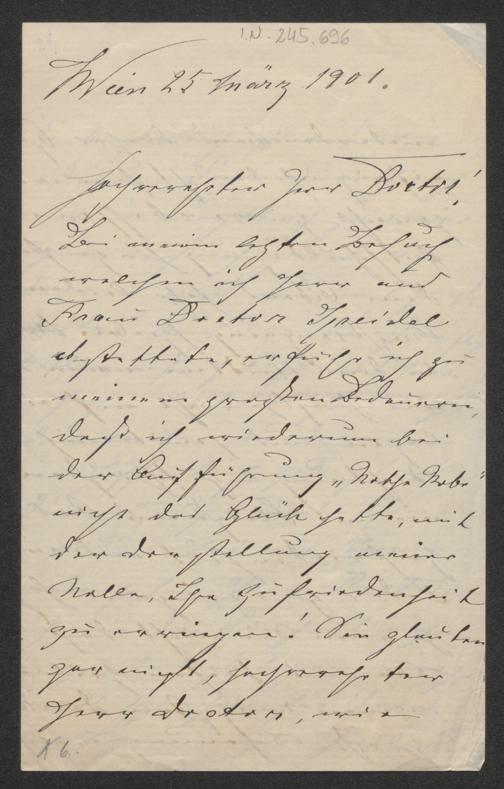 I.N. 245.696
Wien 25 März 1901.
Hochverehrter Herr Doctor!
Bei meinem letzten Besuch
welchen ich Herr und
Frau Doctor Speidel
abstattete, erfuhr ich zu
meinem großen Bedauern,
daß ich wiederum bei
der Aufführung „Rothe Robe"
nicht das Glück hatte, mit
der Darstellung meiner
Rolle, Ihre Zufriedenheit
zu erringen! Sie glauben
gar nicht, hochverehrter
Herr Doctor, wie